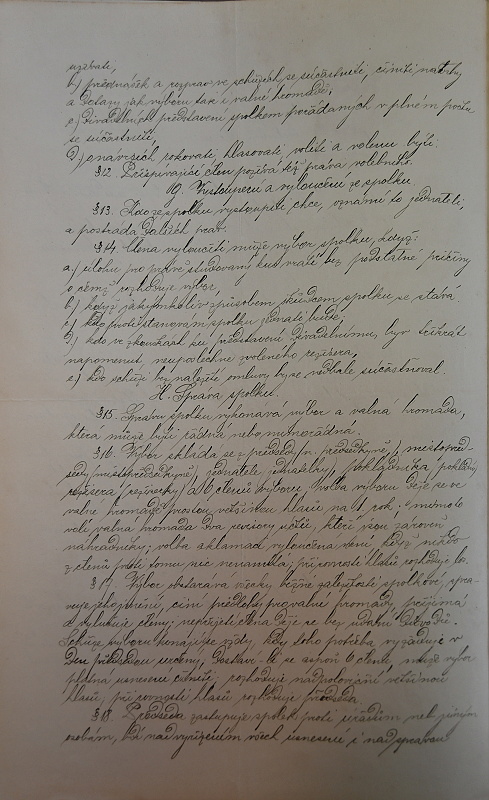 užívati,
b) přednášek a rozprav ve schůzích se súčastniti, činiti návrhy
a dotazy jak výboru tak i valné hromadě,
c) divadelních představení spolkem pořádaných v plném počtu
se súčastniti,
d) o návrzích rokovati, hlasovati, voliti a volenu býti.
§12. Přispívající člen požívá též práva volebního.
G. Vystoupení a vyloučení ze spolku.
§13. Kdo ze spolku vystoupiti chce, oznámí to jednateli,
a postrádá dalších práv.
§14. Člena vyloučiti může výbor spolku, když:
a.) úlohu pro právě studovaný kus vrátí bez podstatné příčiny
o čemž rozhoduje výbor,
b) když jakýmkoliv způsobem škůdcem spolku se stává,
c) kdo proti stanovám spolku jednati bude,
d) kdo ve zkouškách ku představení divadelnímu, byv třikrát
napomenut, neuposlechne voleného režiséra,
e) kdo schůzí bez náležité omluvy by se nedbale súčastňoval.
H. Správa spolku.
§15. Správu spolku vykonává výbor a valná hromada,
která může býti řádná nebo mimořádná.
§16. Výbor skládá se z předsedy (n. předsedkyně,) místopřed-
sedy (místopředsedkyně) jednatele (jednatelky), pokladníka (pokladní)
režiséra (režiserky) a 6 členů výboru. Volba výboru děje se ve
valné hromadě prostou většinou hlasů na 1 rok. Mimoto
volí valná hromada dva revisory účtů, kteří jsou zároveň
náhradníky; volba aklamací vyloučena není, když nikdo
z členů proti tomu nic nenamítá; při rovnosti hlasů rozhoduje los.
§17. Výbor obstarává všecky běžné záležitosti spolkové, spra-
vuje jeho jmění, činí předlohy pro valné hromady, přijímá
a vylučuje členy; nepřijetí člena děje se bez udání důvodů.
Schůze výboru konají se vždy, kdy toho potřeba vyžaduje v
den předsedou určený. Dostaví-li se aspoň 6 členů, může výbor
platná usnesení činiti; rozhoduje nadpoloviční většinou
hlasů, při rovnosti hlasů rozhoduje předseda.
§18. Předseda zastupuje spolek proti úřadům neb jiným
osobám, bdí nad vyřízením všech usnesení i nad správou